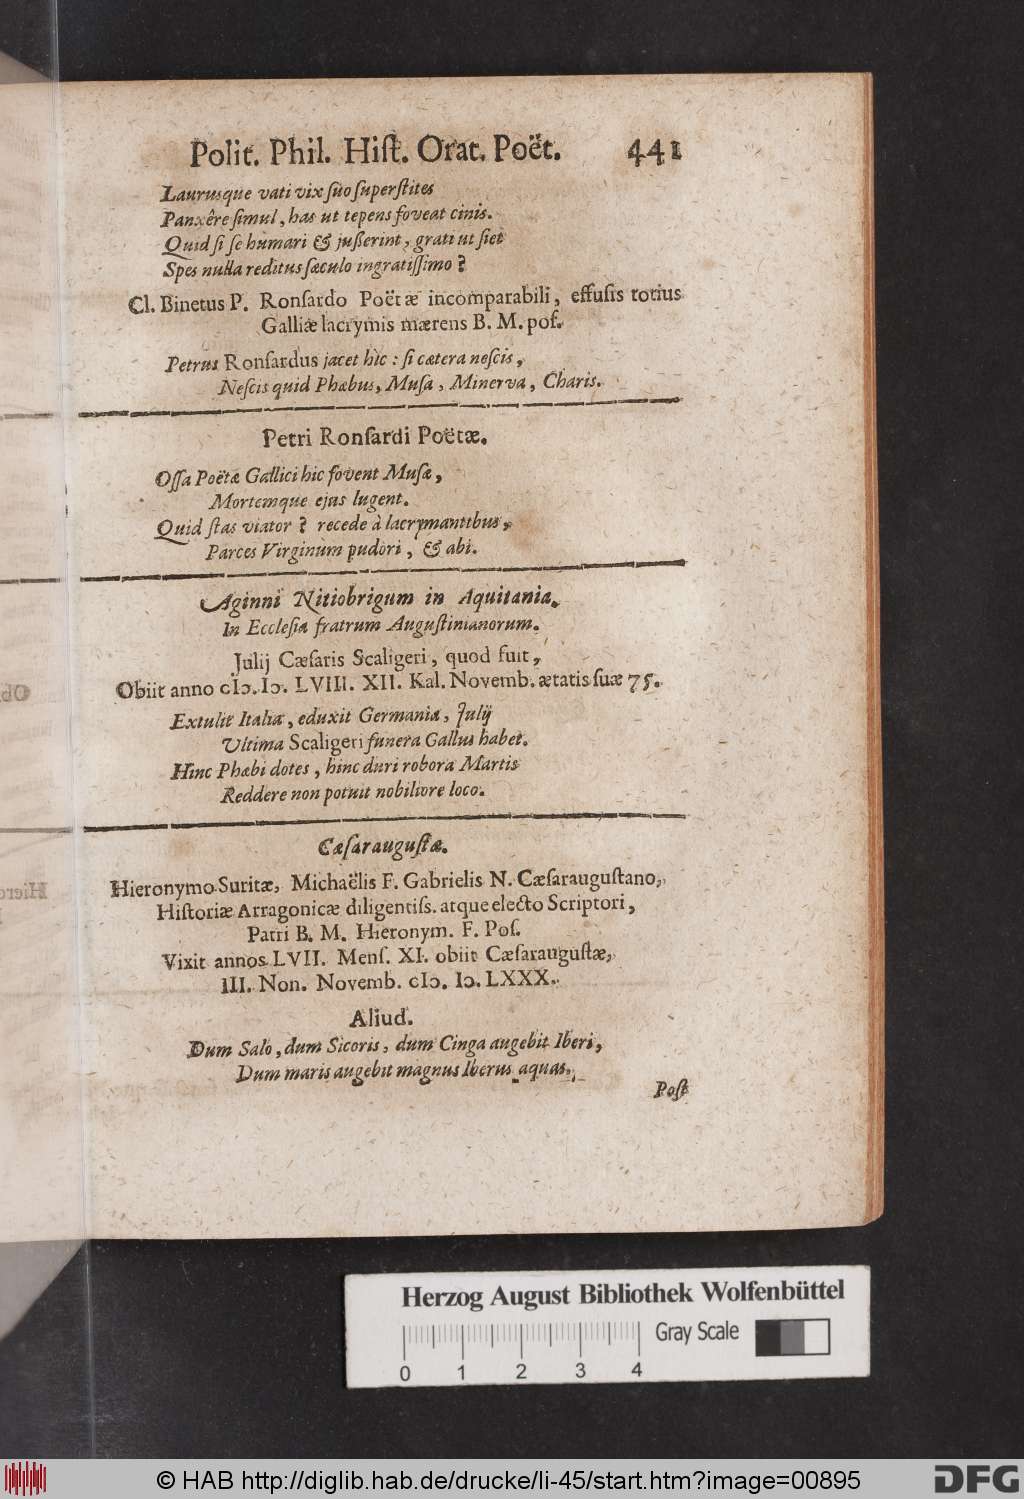 Polit. Phil. Hiſt. Orat. Poët. 441
Laurusque vati vix ſuo ſuperſtites
Panxêre ſimul, has ut tepens foveat cinis.
Quid ſi ſe humari & juſſerint, grati ut ſiet
Spes nulla reditus ſæculo ingratiſſimo?
Cl. Binetus P. Ronſardo Poëtæ incomparabili, effuſis totius
Galliæ lacrymis mærens B. M. poſ.
Petrus Ronſardus jacet hîc: ſi cætera neſcis,
Neſcis quid Phæbus, Muſa, Minerva, Charis.
Petri Ronſardi Poëtæ.
Oſſa Poëtæ Gallici hic fovent Muſæ,
Mortemque ejus lugent.
Quid ſtas viator? recede à lacrymantibus,
Parces Virginum pudori, & abi.
Aginni Nitiobrigum in Aquitania.
In Eccleſia fratrum Auguſtinianorum.
Julij Cæſaris Scaligeri, quod fuit,
Obiit anno cIɔ.Iɔ. LVIII. XII. Kal. Novemb. ætatis ſuæ 75.
Extulit Italia, eduxit Germania, Julij
Ultima Scaligeri funera Gallus habet.
Hinc Phæbi dotes, hinc duri robora Martis
Reddere non potuit nobiliore loco.
Cæſarauguſtæ.
Hieronymo Suritæ, Michaëlis F. Gabrielis N. Cæſarauguſtano,
Hiſtoriæ Arragonicæ diligentiſs. atque electo Scriptori,
Patri B. M. Hieronym. F. Poſ.
Vixit annos LVII. Menſ. XI. obiit Cæſarauguſtæ,
III. Non. Novemb. cIɔ. Iɔ. LXXX.
Aliud.
Dum Salo, dum Sicoris, dum Cinga augebit Iberi,
Dum maris augebit magnus Iberus aquas,
Poſt
Herzog August Bibliothek Wolfenbüttel
Gray Scale
0 1 2 3 4
© HAB http://diglib.hab.de/drucke/li-45/start.htm?image=00895
DFG